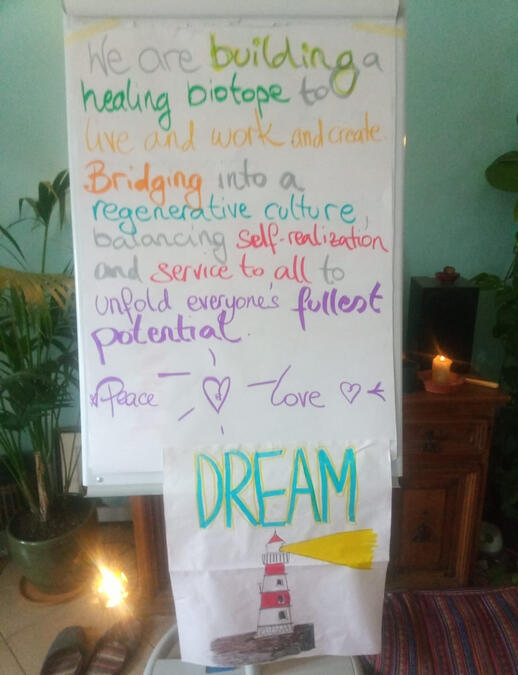 We are building a
healing biotope to
live and work and create.
Bridging into a
regenerative culture,
balancing self-realization
and service to all to
unfold everyone's fullest
potential.
Peace Love
DREAM